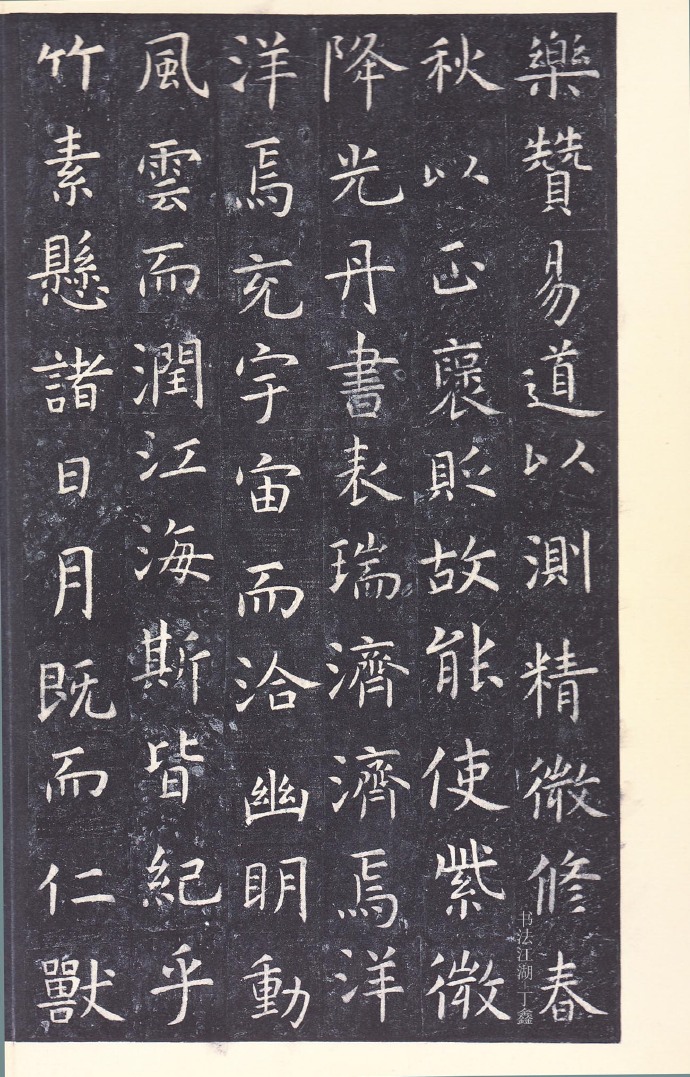 樂贊易道以測精微修春
秋以正襃貶故能使紫微
降光丹書表瑞濟濟焉洋
洋焉充宇宙而洽幽明動
風雲而潤江海斯皆紀乎
竹素懸諸日月既而仁獸
书法江湖 丁鑫